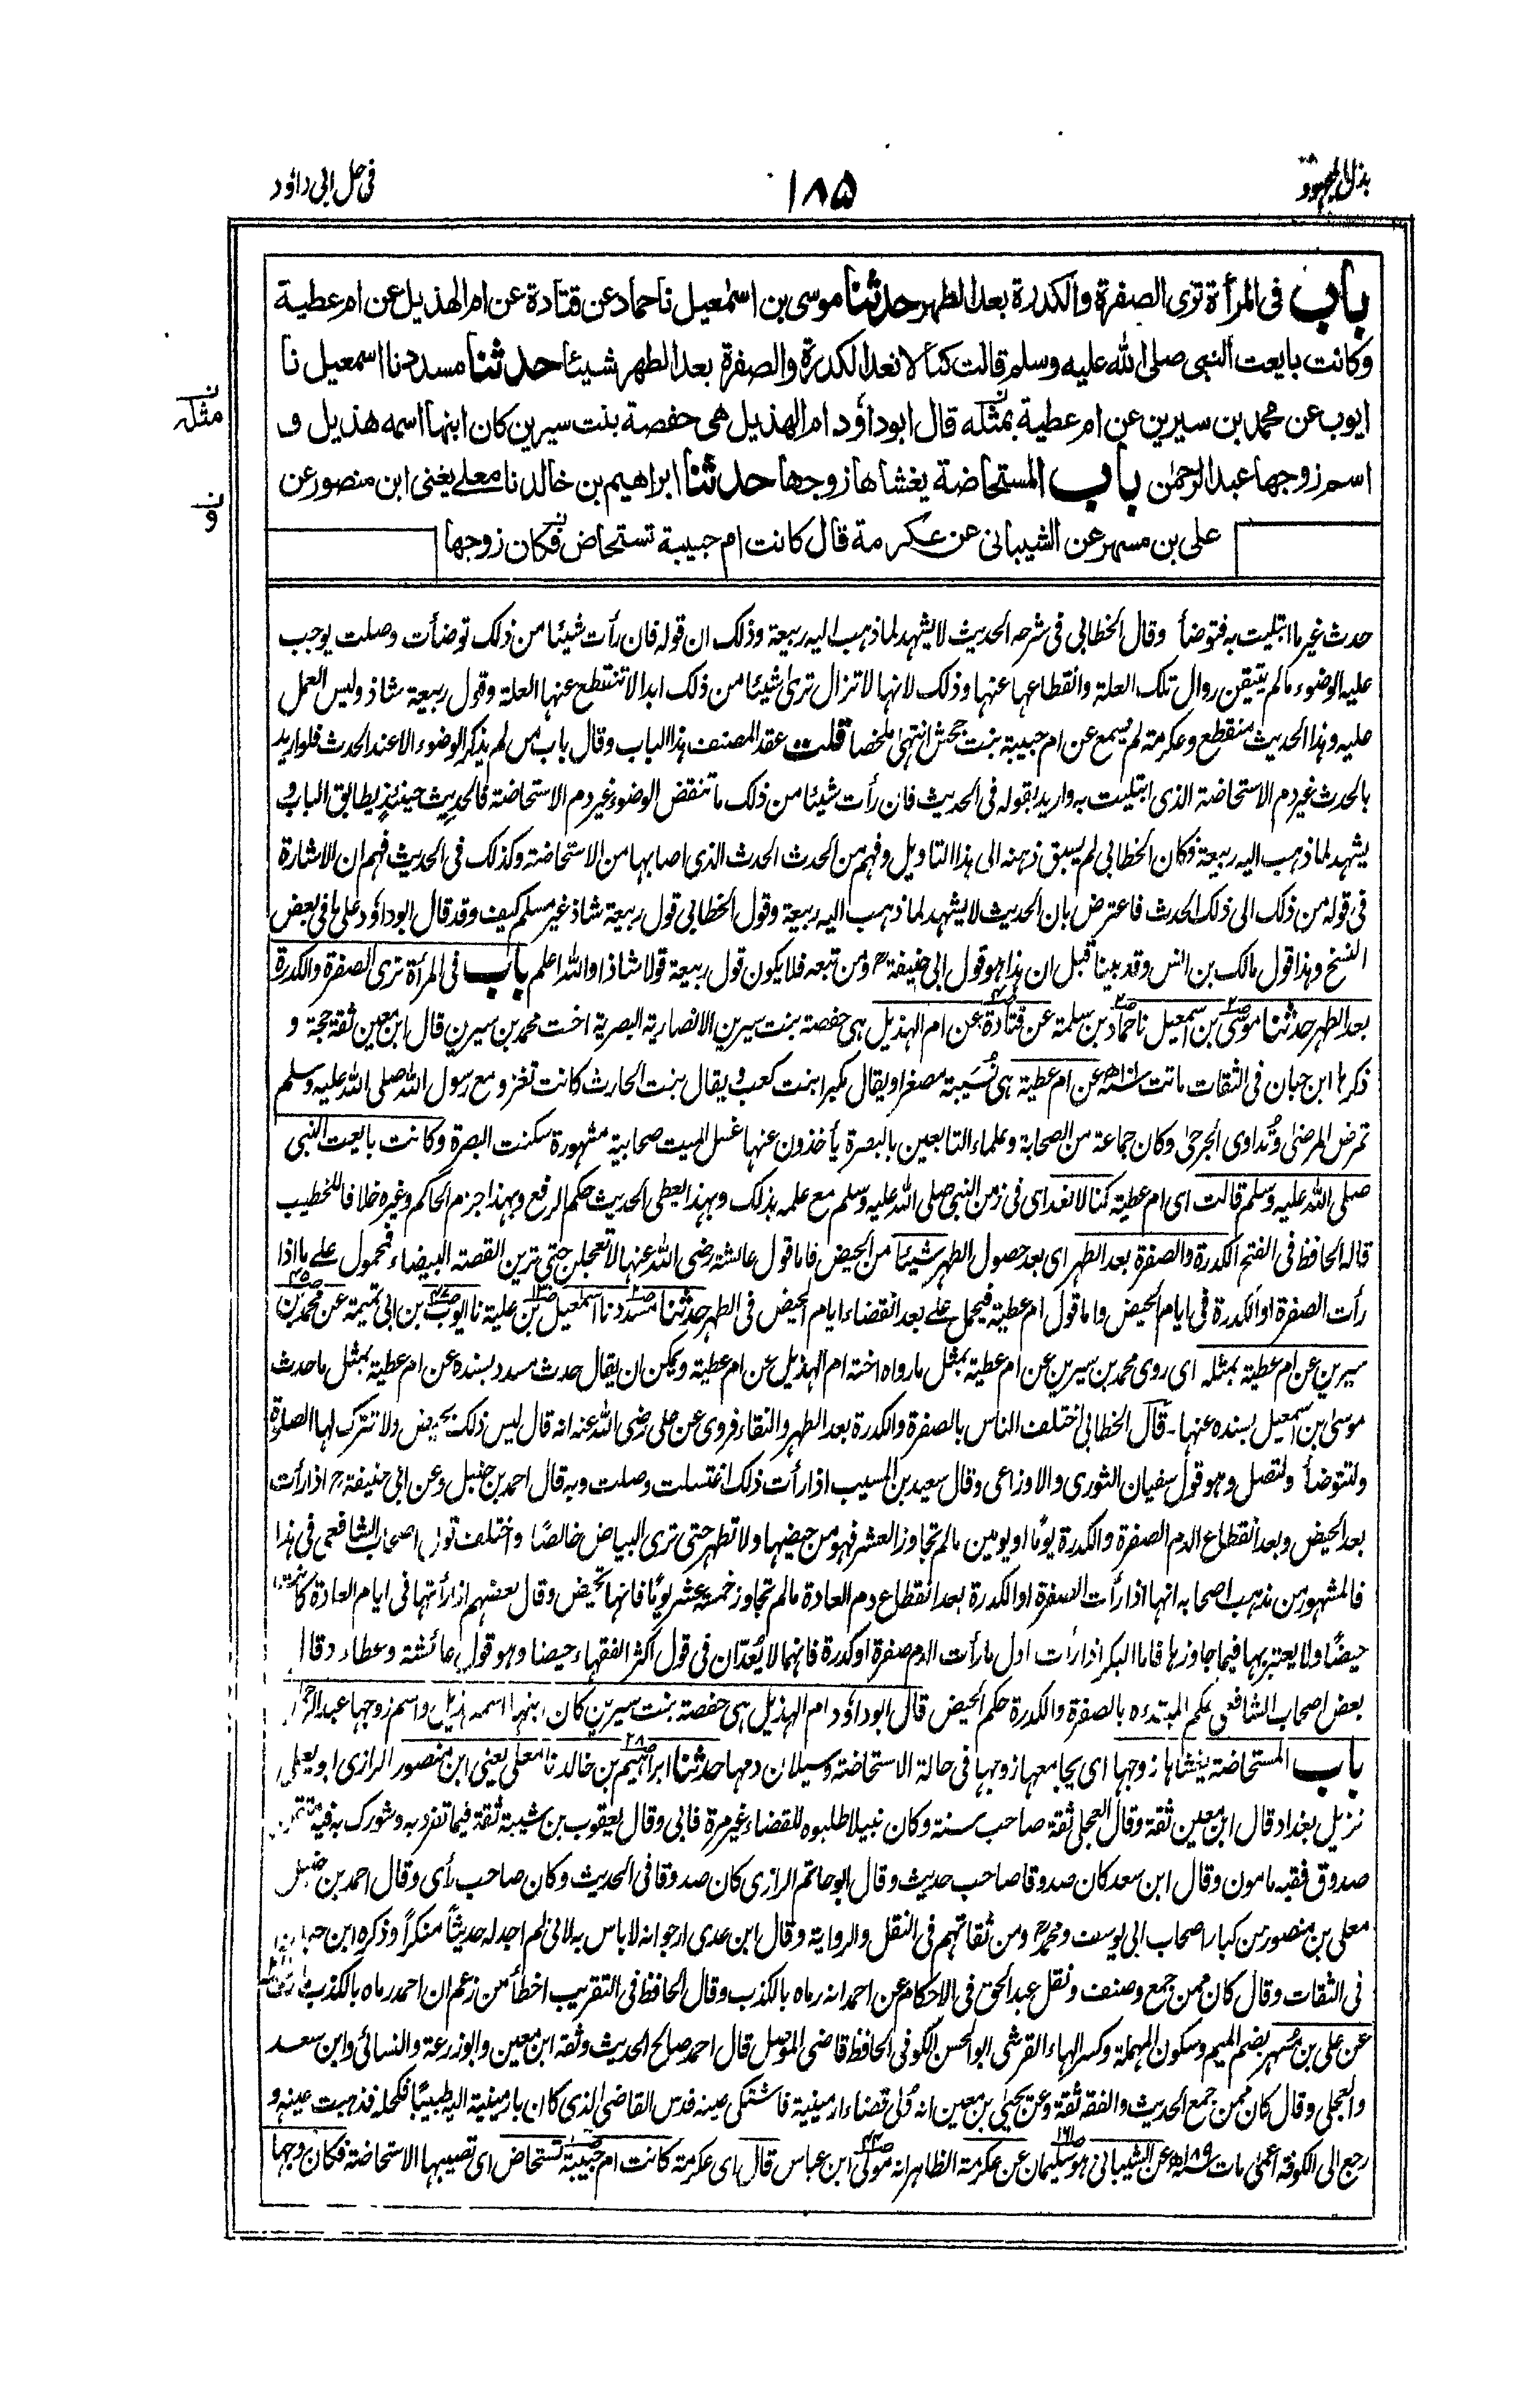 بذل المجهود
١٨٥
فى حل ابى داؤد
باب فى المرأة ترى الصفرة والكدرة بعد الطهر حدثنا موسى بن اسمٰعيل نا حماد عن قتادة عن ام الهذيل عن ام عطية
وكانت بايعت النبى صلى الله عليه وسلم قالت كنا لا نعد الكدرة والصفرة بعد الطهر شيئا حدثنا مسدد نا اسمعيل نا
ايوب عن محمد بن سيرين عن ام عطية بمثله قال ابوداؤد ام الهذيل هى حفصة بنت سيرين كان ابنها اسمه هذيل و
اسم زوجها عبد الرحمٰن باب المستحاضة يغشاها زوجها حدثنا ابراهيم بن خالد نا معلے يعنى ابن منصور عن
على بن مسهر عن الشيبانى عن عكرمة قال كانت ام حبيبة تستحاض فكان زوجها
مثله
و
حدث غير ما ابتليت به فتوضأ وقال الخطابى فى شرحه الحديث لا يشهد لما ذهب اليه ربيعة وذلك ان قوله فان رأت شيئا من ذلك توضأت وصلت يوجب
عليه الوضوء ما لم يتيقن زوال تلك العلة وانقطاعها عنها وذلك لانها لا تزال ترى شيئا من ذلك ابدا الا تنقطع عنها العلة وقول ربيعة شاذ وليس العمل
عليه وهذا الحديث منقطع وعكرمة لم يسمع عن ام حبيبة بنت جحش انتهى ملخصا قلت عقد المصنف هذا الباب وقال باب من لم يذكر الوضوء الا عند الحدث فلو اريد
بالحدث غير دم الاستحاضة الذى ابتليت به واريد بقوله فى الحديث فان رأت شيئا من ذلك ما تنقض الوضوء غير دم الاستحاضة فالحديث حينئذ يطابق الباب و
يشهد لما ذهب اليه ربيعة فكان الخطابى لم يسبق ذهنه الى هذا التاويل وفهم من الحدث الحدث الذى اصابها من الاستحاضة وكذلك فى الحديث فهم ان الاشارة
فى قوله من ذلك الى ذلك الحدث فاعترض بان الحديث لا يشهد لما ذهب اليه ربيعة وقول الخطابى قول ربيعة شاذ غير مسلم كيف وقد قال ابوداؤد على ما فى بعض
النسخ وهذا قول مالك بن انس وقد بينا قبل ان هذا هو قول ابى حنيفة ومن تبعه فلا يكون قول ربيعة قولا شاذا والله اعلم باب فى المرأة ترى الصفرة والكدرة
بعد الطهر حدثنا موسى بن اسمعيل نا حماد بن سلمة عن قتادة عن ام الهذيل هى حفصة بنت سيرين الانصارية البصرية اخت محمد بن سيرين قال ابن معين ثقة حجة و
ذكرها ابن حبان فى الثقات ماتت سنة ١٠١ھ عن ام عطية هى نُسَيبة مصغرا ويقال مكبرا بنت كعب ويقال بنت الحارث كانت تغزو مع رسول الله صلى الله عليه وسلم
تمرض المرضى وتُداوى الجرحى وكان جماعة من الصحابة وعلماء التابعين بالبصرة يأخذون عنها غسل الميت صحابية مشهورة سكنت البصرة وكانت بايعت النبى
صلى الله عليه وسلم قالت اى ام عطية كنا لا نعد اى فى زمن النبى صلى الله عليه وسلم مع علمه بذلك وبهذا يعطى الحديث حكم الرفع وبهذا جزم الحاكم وغيره خلافا للخطيب
قاله الحافظ فى الفتح الكدرة والصفرة بعد الطهر اى بعد حصول الطهر شيئا من الحيض فاما قول عائشة رضى الله عنها لا تعجلن حتى ترين القصة البيضاء فمحمول على ما اذا
رأت الصفرة او الكدرة فى ايام الحيض واما قول ام عطية فيحمل على بعد انقضاء ايام الحيض فى الطهر حدثنا مسدد نا اسمعيل بن علية نا ايوب بن ابى تميمة عن محمد بن
سيرين عن ام عطية بمثله اى روى محمد بن سيرين عن ام عطية بمثل ما رواه اخته ام الهذيل عن ام عطية ويمكن ان يقال حدث مسدد بسنده عن ام عطية بمثل ما حدث
موسى بن اسمعيل بسنده عنها۔ قال الخطابى اختلف الناس بالصفرة والكدرة بعد الطهر والنقاء فروى عن على رضى الله عنه انه قال ليس ذلك بحيض ولا تترك لها الصلوة
ولتتوضأ ولتصل وهو قول سفيان الثورى والاوزاعى وقال سعيد بن المسيب اذا رأت ذلك اغتسلت وصلت وبه قال احمد بن حنبل وعن ابى حنيفة اذا رأت
بعد الحيض وبعد انقطاع الدم الصفرة والكدرة يومًا او يومين ما لم تجاوز العشر فهو من حيضها ولا تطهر حتى ترى البياض خالصًا واختلف قول اصحاب الشافعى فى هذا
فالمشهور من مذهب اصحابه انها اذا رأت الصفرة او الكدرة بعد انقطاع دم العادة ما لم تجاوز خمسة عشر يومًا فانها تحيض وقال بعضهم اذا رأتها فى ايام العادة كانت
حيضًا ولا يعتبر بها فيما جاوزها فاما البكر اذا رأت اول ما رأت الدم صفرة او كدرة فانهما لا يُعدّان فى قول اكثر الفقهاء حيضا وهو قول عائشة وعطاء وقال
بعض اصحاب الشافعى حكم المبتدءه بالصفرة والكدرة حكم الحيض قال ابوداؤد ام الهذيل هى حفصة بنت سيرين كان ابنها اسمه هذيل واسم زوجها عبد الرحمٰن
باب المستحاضة يغشاها زوجها اى يجامعها زوجها فى حالة الاستحاضة وسيلان دمها حدثنا ابراهيم بن خالد نا معلى يعنى ابن منصور الرازى ابو يعلى
نزيل بغداد قال ابن معين ثقة وقال العجلى ثقة صاحب سنة وكان نبيلا طلبوه للقضاء غير مرة فابى وقال يعقوب بن شيبة ثقة فيما تفرد به وشورك به فيه متقن
صدوق فقيه مامون وقال ابن سعد كان صدوقا صاحب حديث وقال ابو حاتم الرازى كان صدوقا فى الحديث وكان صاحب رأى وقال احمد بن حنبل
معلى بن منصور من كبار اصحاب ابى يوسف ومحمد ومن ثقاتهم فى النقل والرواية وقال ابن عدى ارجو انه لا باس به لانى لم اجد له حديثًا منكرًا وذكره ابن حبان
فى الثقات وقال كان ممن جمع وصنف ونقل عبد الحق فى الاحكام عن احمد انه رماه بالكذب وقال الحافظ فى التقريب اخطأ من زعم ان احمد رماه بالكذب
عن على بن مُسهر بضم الميم وسكون المهملة وكسر الهاء القرشى ابو الحسن الكوفى الحافظ قاضى الموصل قال احمد صالح الحديث وثقه ابن معين وابو زرعة والنسائى وابن سعد
والعجلى وقال كان ممن جمع الحديث والفقه ثقة وعن يحيى بن معين انه ولى قضاء ارمينية فاشتكى عينه فدس القاضى الذى كان بارمينية اليه طبيبًا فكحله فذهبت عينه و
رجع الى الكوفة اعمى مات سنة ١٨٩ھ عن الشيبانى هو سليمان عن عكرمة الظاهر انه مولى ابن عباس قال اى عكرمة كانت ام حبيبة تستحاض اى تصيبها الاستحاضة فكان زوجها